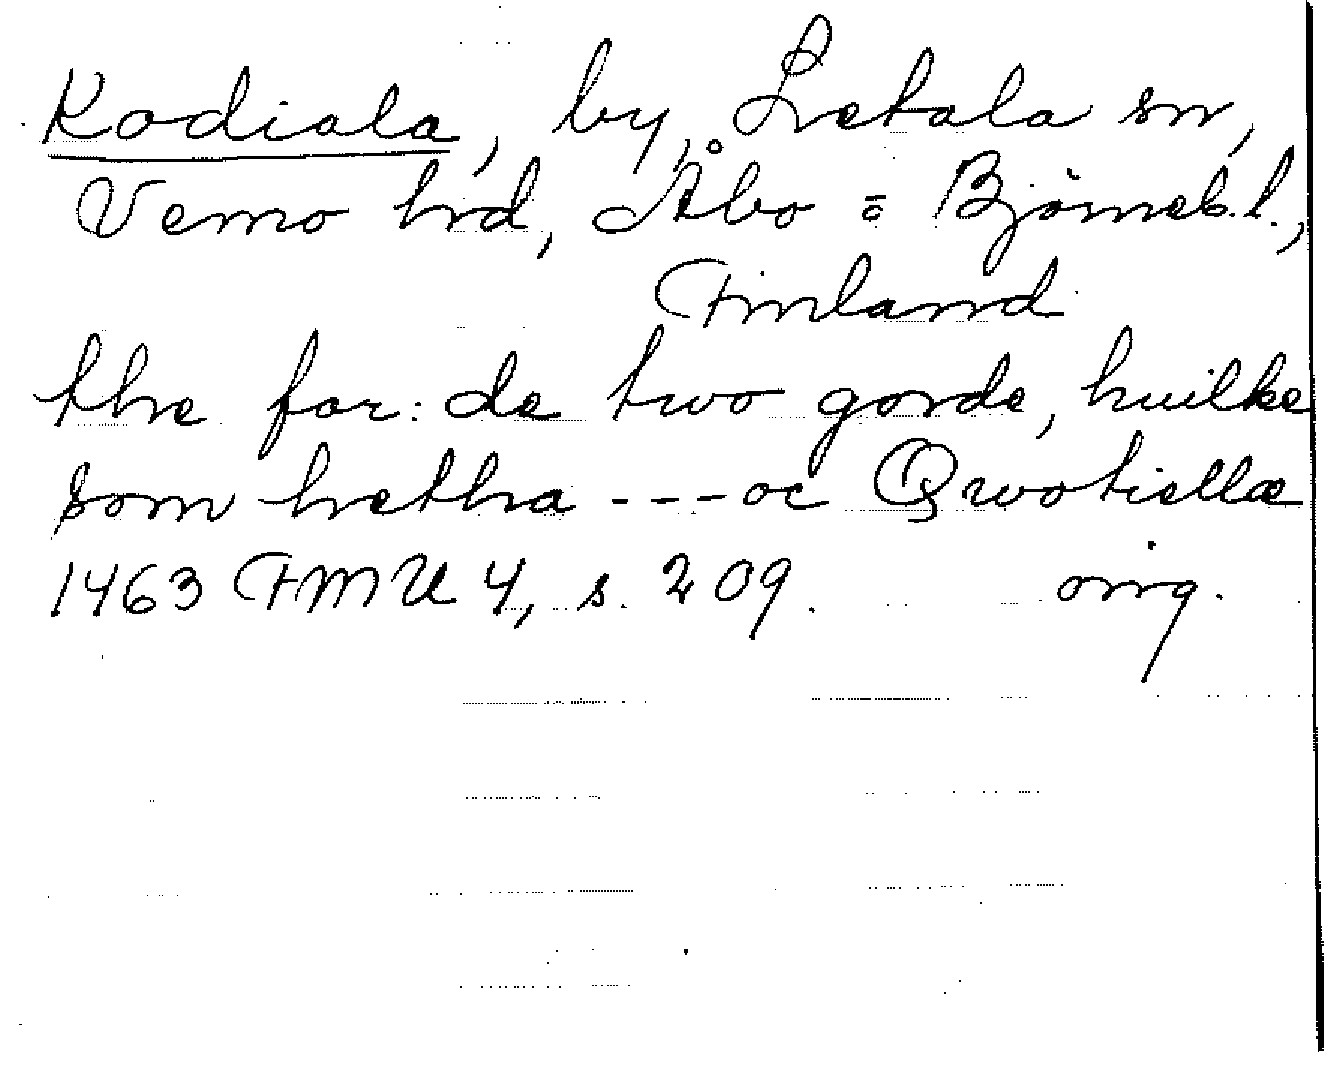 Kodiala, by, Letala sn,
Vemo hrd, Åbo = Björneb.l.,
Finland
thre for:de two gorde, huilke
som hretha --- oc Qwotiellæ
1463 FMU 4, s. 209. orig.